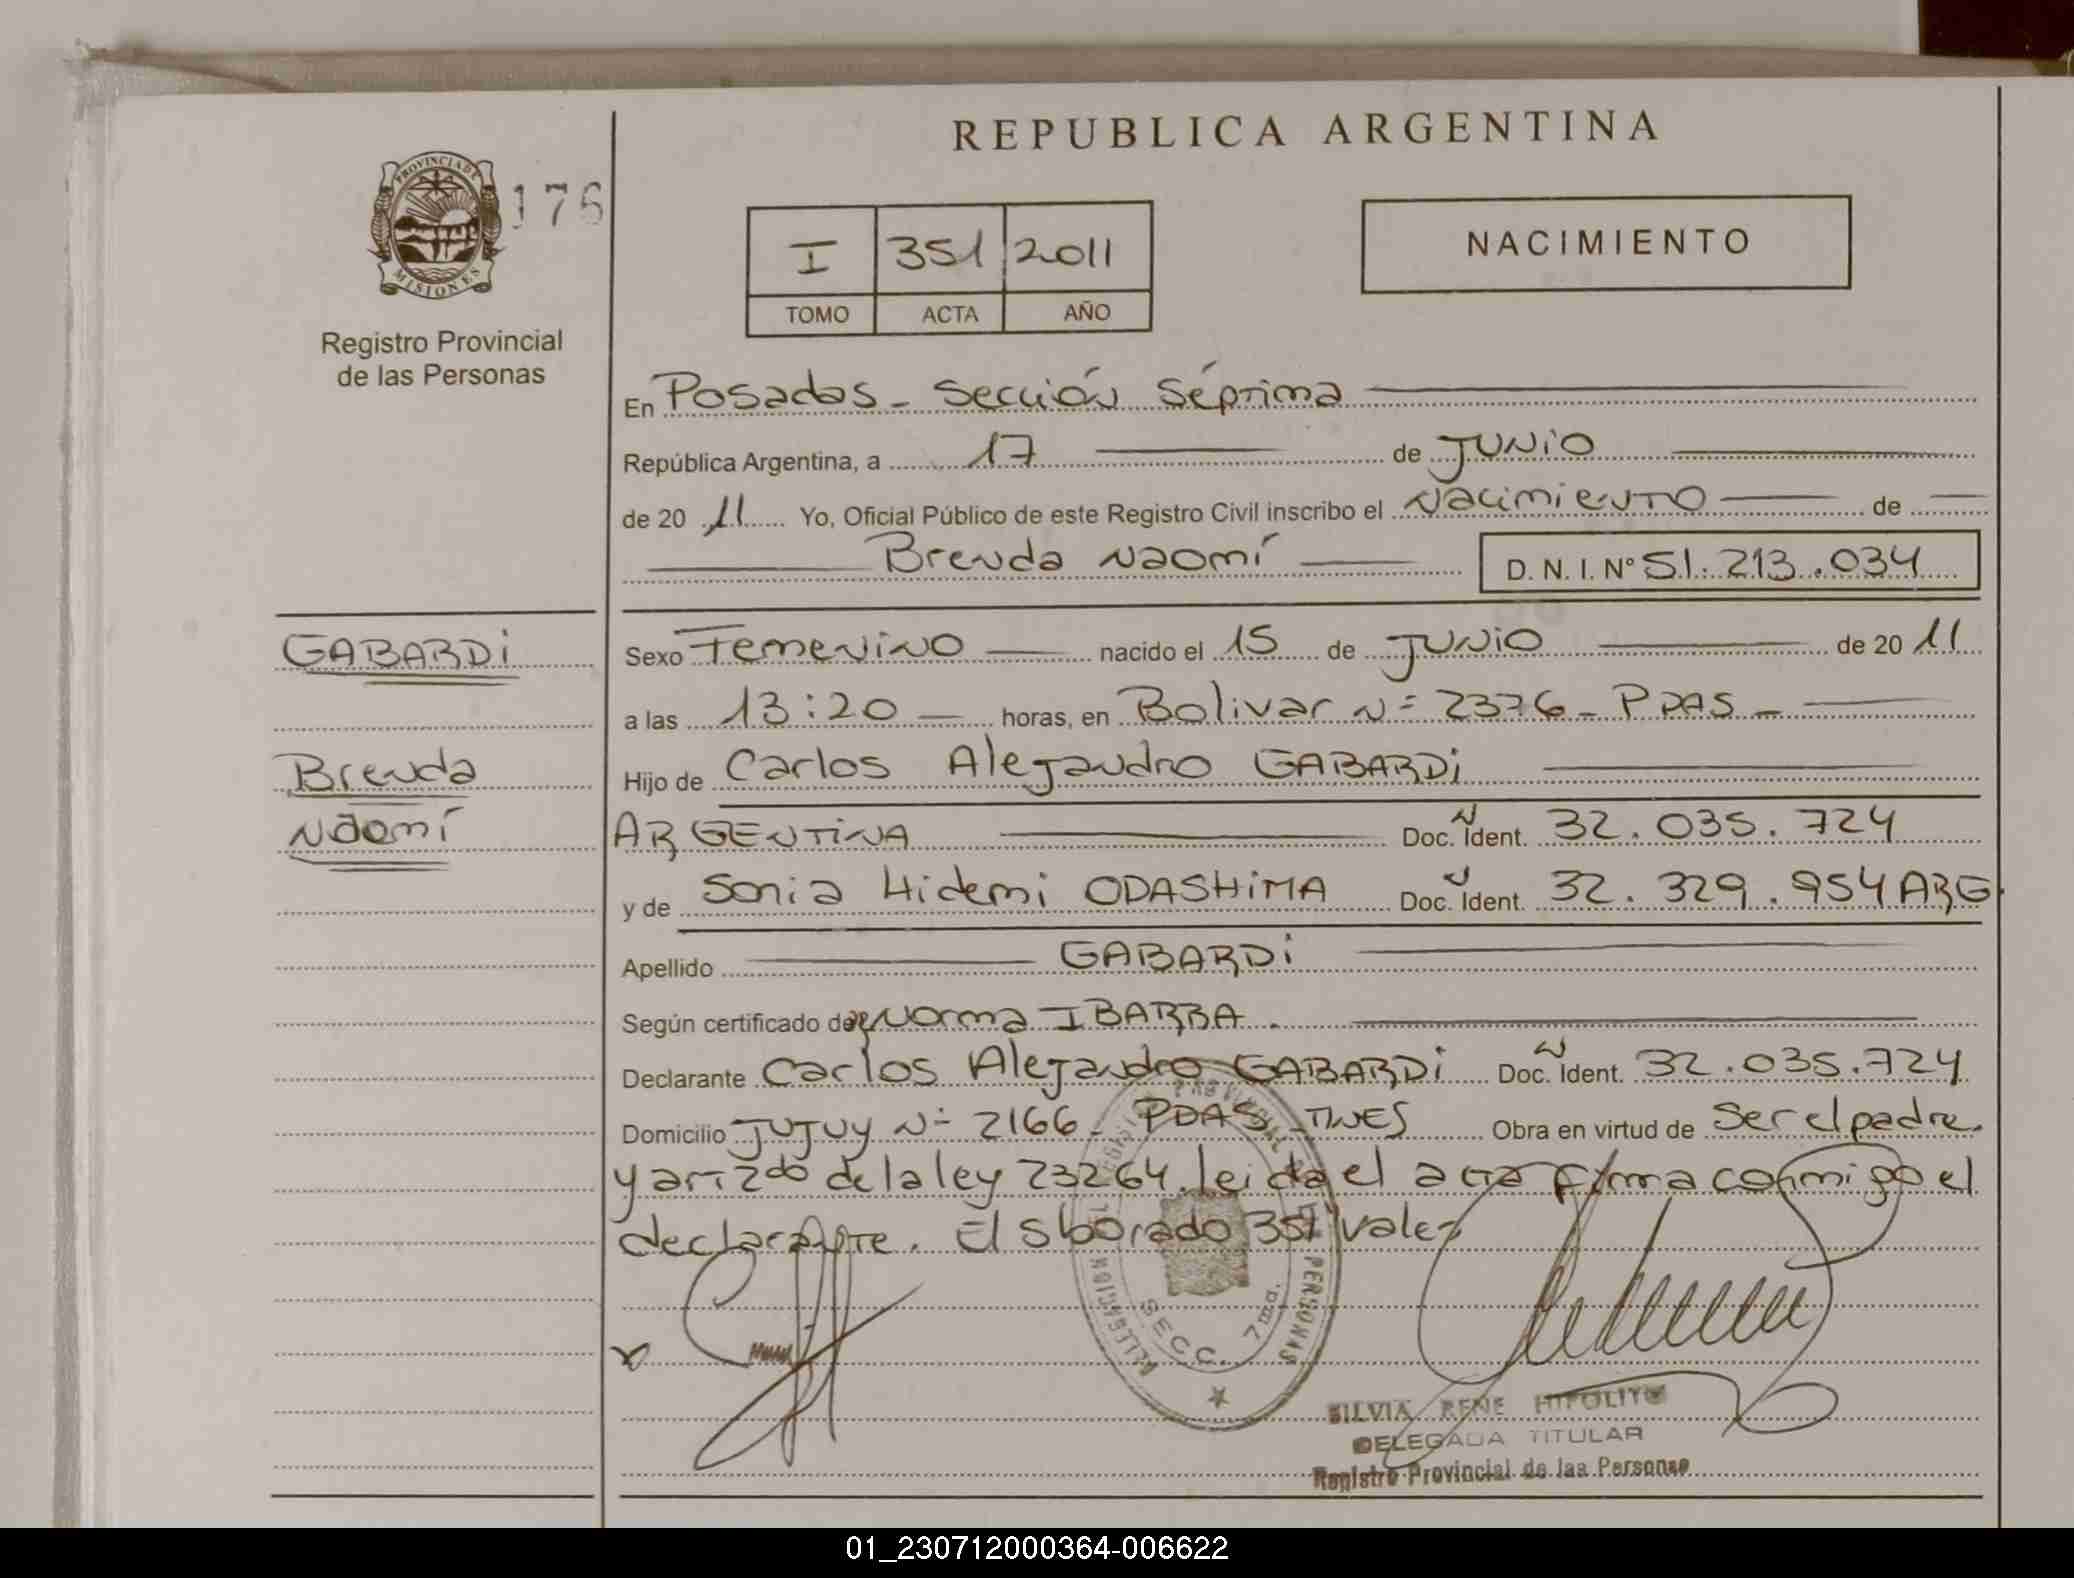 REPUBLICA ARGENTINA
PROVINCIA DE MISIONES
176
Registro Provincial
de las Personas
I 351 2011
TOMO ACTA AÑO
NACIMIENTO
En Posadas - Sección Séptima
República Argentina, a 17 de JUNIO
de 20 11 Yo, Oficial Público de este Registro Civil inscribo el Nacimiento de
Brenda Naomí D. N. I. Nº 51.213.034
GABARDI
Brenda
Naomí
Sexo Femenino nacido el 15 de JUNIO de 20 11
a las 13:20 horas, en Bolivar Nº 2376 - PDAS -
Hijo de Carlos Alejandro GABARDI
ARGENTINA Doc. Ident. 32.035.724
y de Sonia Hidemi ODASHIMA Doc. Ident. 32.329.954 ARG.
Apellido GABARDI
Según certificado de Norma IBARRA.
Declarante Carlos Alejandro GABARDI Doc. Ident. 32.035.724
Domicilio JUJUY Nº 2166 - PDAS - Obra en virtud de ser el padre
y art 2do de la ley 23264. leida el acta firma conmigo el
declarante. El sborado 351 vale
SECC. 7ma.
SILVIA RENE HIPOLITO
DELEGADA TITULAR
Registro Provincial de las Personas
01_230712000364-006622